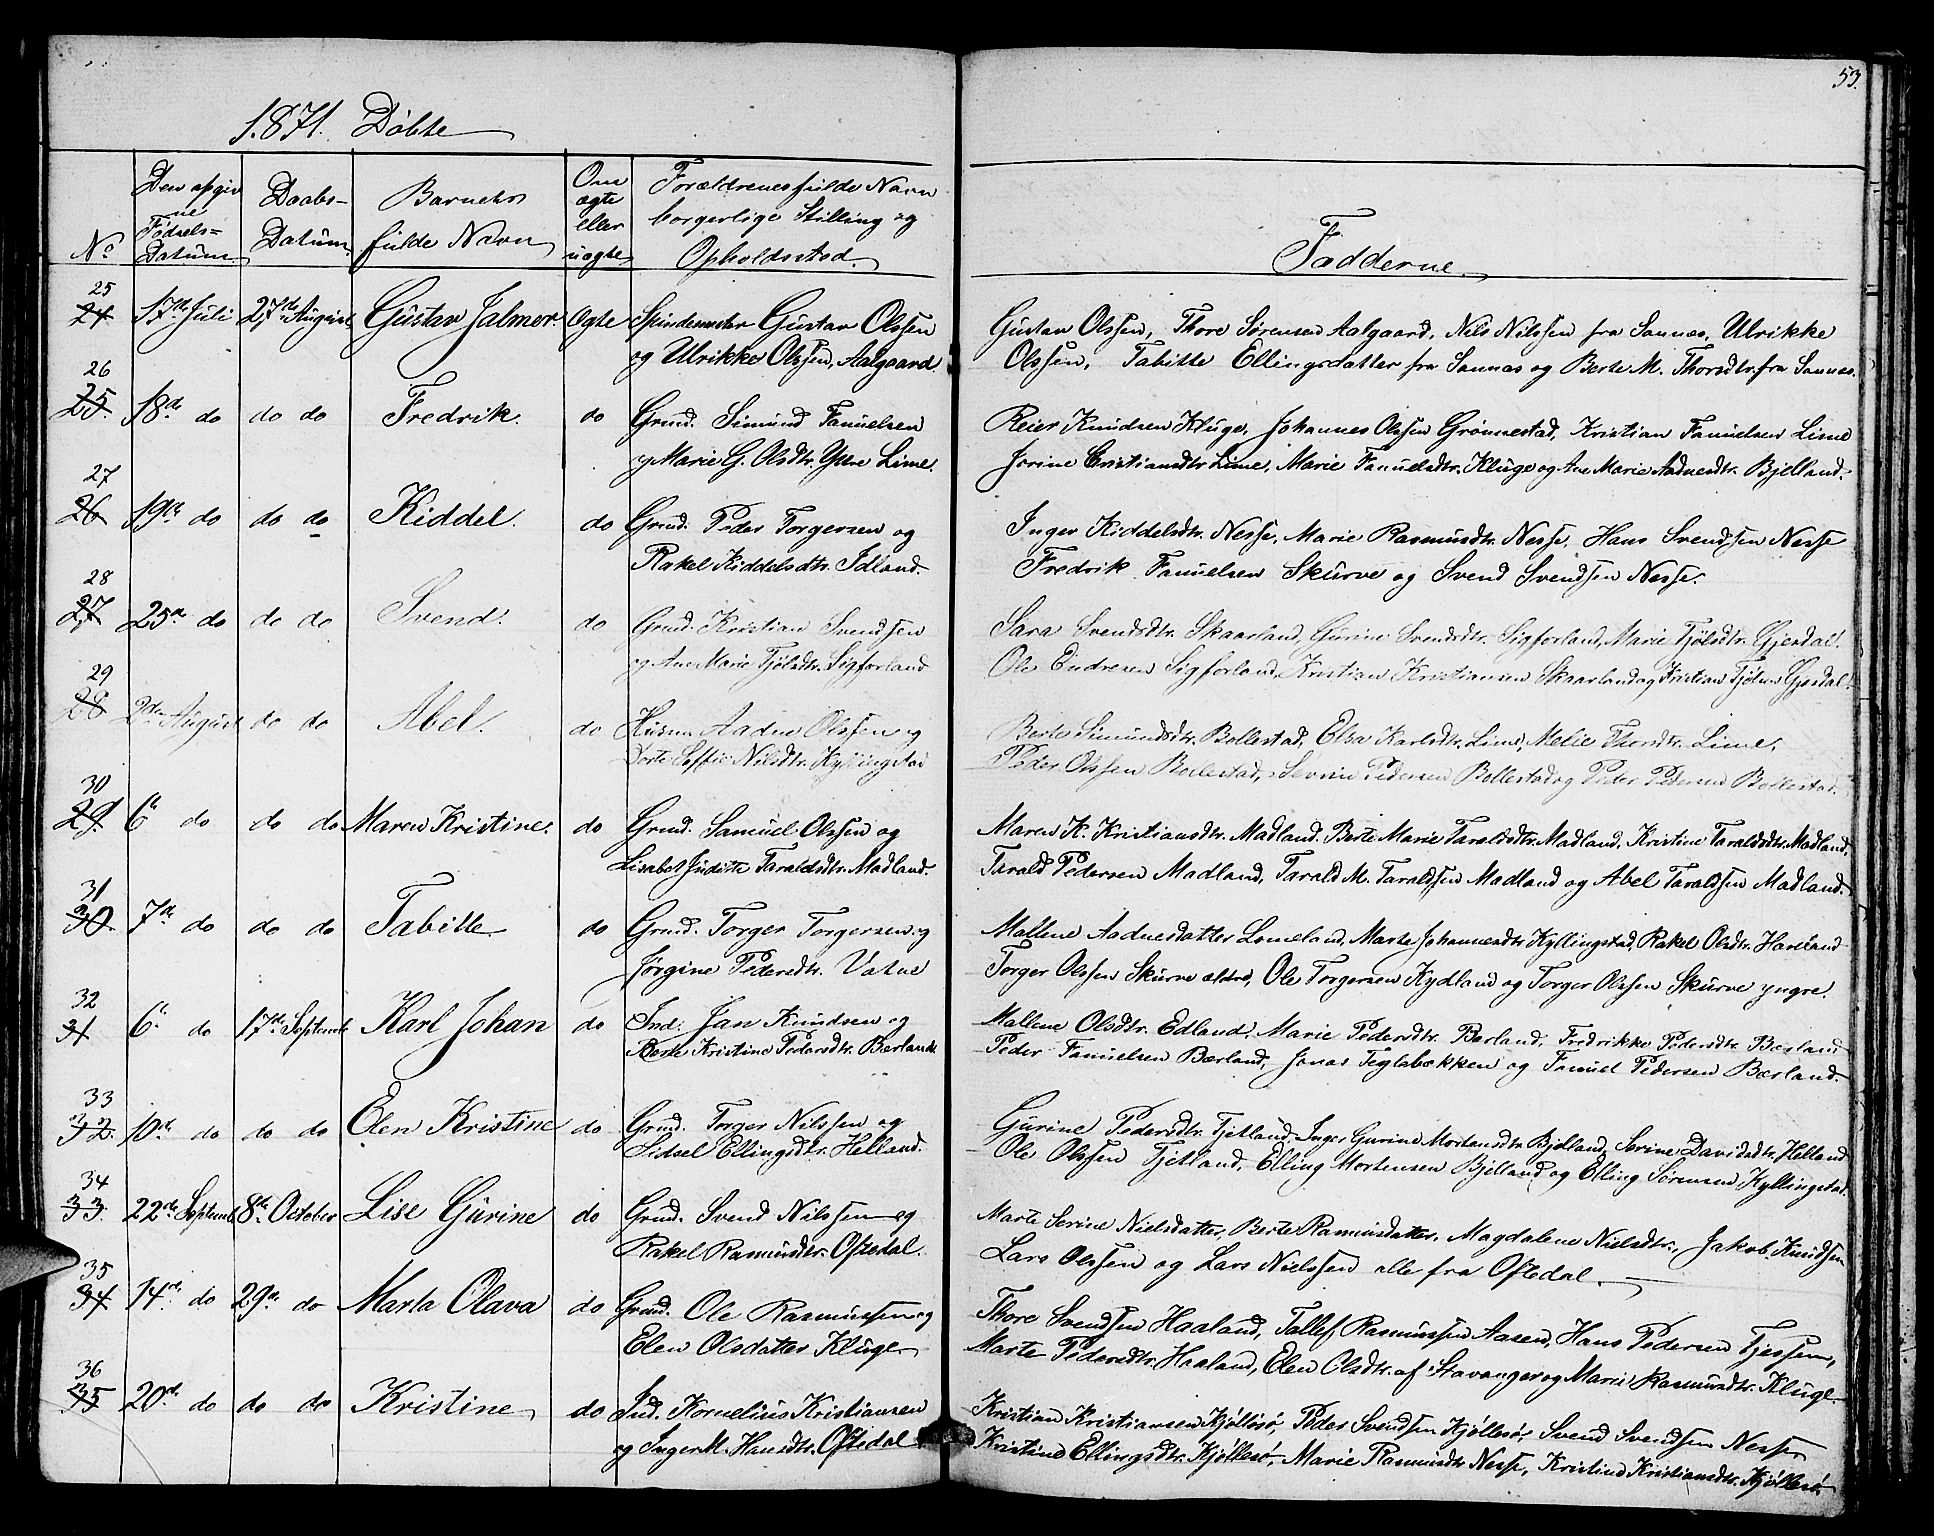 53.
1871. Døbte
No
Den opgivne Fødsels-Datum.
Daabs-Datum.
Barnets fulde Navn
Om ægte eller uægte
Forældrenes fulde Navn borgerlige Stilling og Opholdssted.
Fadderne.
25 24 17de Juli 27de August Gustav Jalmer. Ægte Spindemester Gustav Olssen
og Ulrikke Olssen, Aalgaard.
Gustav Olssen, Thore Sørensen Aalgaard, Nils Nilssen fra Sannæs, Ulrikke
Olssen, Tabitte Ellingsdatter fra Sannæs og Berte M. Thorsdtr. fra Sannæs.
26 25. 18de do do do Fredrik. do Grud. Simund Fanuelsen
og Marie G. Olsdtr. Ytre Lime.
Reier Knudsen Kluge, Johannes Olssen Grønnestad, Kristian Fanuelsen Lime
Jorine Cristiansdtr. Lime, Marie Fanuelsdtr. Kluge og Ane Marie Aadnesdtr. Bjelland.
27 26 19de do do do Kiddel. do Grud. Peder Torgersen og
Rakel Kiddelsdtr. Idland.
Inger Kiddelsdtr. Nesse, Marie Rasmusdtr. Nesse, Hans Svendsen Nesse
Fredrik Fanuelsen Skurve og Svend Svendsen Nesse.
28 27 25de do do do Svend. do Grud. Kristian Svendsen
og Ane Marie Tjølsdtr. Sigforland
Sara Svendsdtr. Skaarland, Gurine Svendsdtr. Sigforland, Marie Tjølsdtr. Gjesdal.
Ole Endresen Sigforland, Kristian Kristiansen Skaarland og Kristian Tjølsen Gjesdal.
29 28 2den August do do Abel. do Husm. Aadne Olssen og
Dorte Soffie Nilsdtr. Kyllingstad
Berte Simundsdtr. Bollestad, Elsa Karlsdtr. Lime, Melie Thorsdtr. Lime,
Peder Olssen Bollestad, Sevrin Pedersen Bollestad og Peder Pedersen Bollestad.
30 29. 6te do do do Maren Kristine. do Grud. Samuel Olssen og
Lisabet Juditte Taraldsdtr. Madland.
Maren K. Kristiansdtr. Madland. Berte Marie Taraldsdtr. Madland, Kristine Taraldsdtr. Madland,
Tarald Pedersen Madland, Tarald M. Taraldsen Madland og Abel Taraldsen Madland.
31 30. 7de do do do Tabitte do Grud. Torger Torgersen og
Jørgine Pedersdtr. Vatne
Mallene Aadnesdatter Lomeland, Marte Johannesdtr. Kyllingstad, Rakel Olsdtr. Haveland
Torger Olssen Skurve ældre, Ole Torgersen Kydland og Torger Olssen Skurve yngre.
32 31 6te do 17de Septemb. Karl Johan do Ind. Jan Knudsen og
Berte Kristine Pedersdtr. Bærland.
Mallene Olsdtr. Edland, Marie Pedersdtr. Bærland, Fredrikke Pedersdtr. Bærland
Peder Fanuelsen Bærland, Jonas Teglebækken og Fanuel Pedersen Bærland.
33 32. 10de do do do Elen Kristine do Grud. Torger Nilssen og
Sidsel Ellingsdtr. Helland.
Gurine Pedersdtr. Tjetland, Inger Gurine Mortensdtr. Bjelland, Serine Davidsdtr. Helland
Ole Olssen Tjetland, Elling Mortensen Bjelland og Elling Sørensen Kyllingstad.
34 33. 22de Septemb. 8de October Lise Gurine do Grud. Svend Nilssen og
Rakel Rasmusdtr. Oftedal.
Marte Serine Nielsdatter, Berte Rasmusdatter, Magdalene Nielsdtr., Jakob Knudsen
Lars Olssen og Lars Nielssen alle fra Oftedal.
35 34 14de do 29de do Marta Olava do Grud. Ole Rasmussen og
Elen Olsdatter Kluge
Thore Svendsen Haaland, Tallef Rasmussen Aasen, Hans Pedersen Tjessem,
Marte Pedersdtr. Haaland, Elen Olsdtr. af Stavanger og Marie Rasmusdtr. Kluge.
36 35 20de do do do Kristine do Ind. Kornelius Kristiansen
og Inger M. Hansdtr. Oftedal
Kristian Kristiansen Kjøllesø, Peder Svendsen Kjøllesø, Svend Svendsen Nesse,
Kristine Ellingsdtr. Kjøllesø, Marie Rasmusdtr. Nesse, Kristine Kristiansdtr. Kjøllesø.